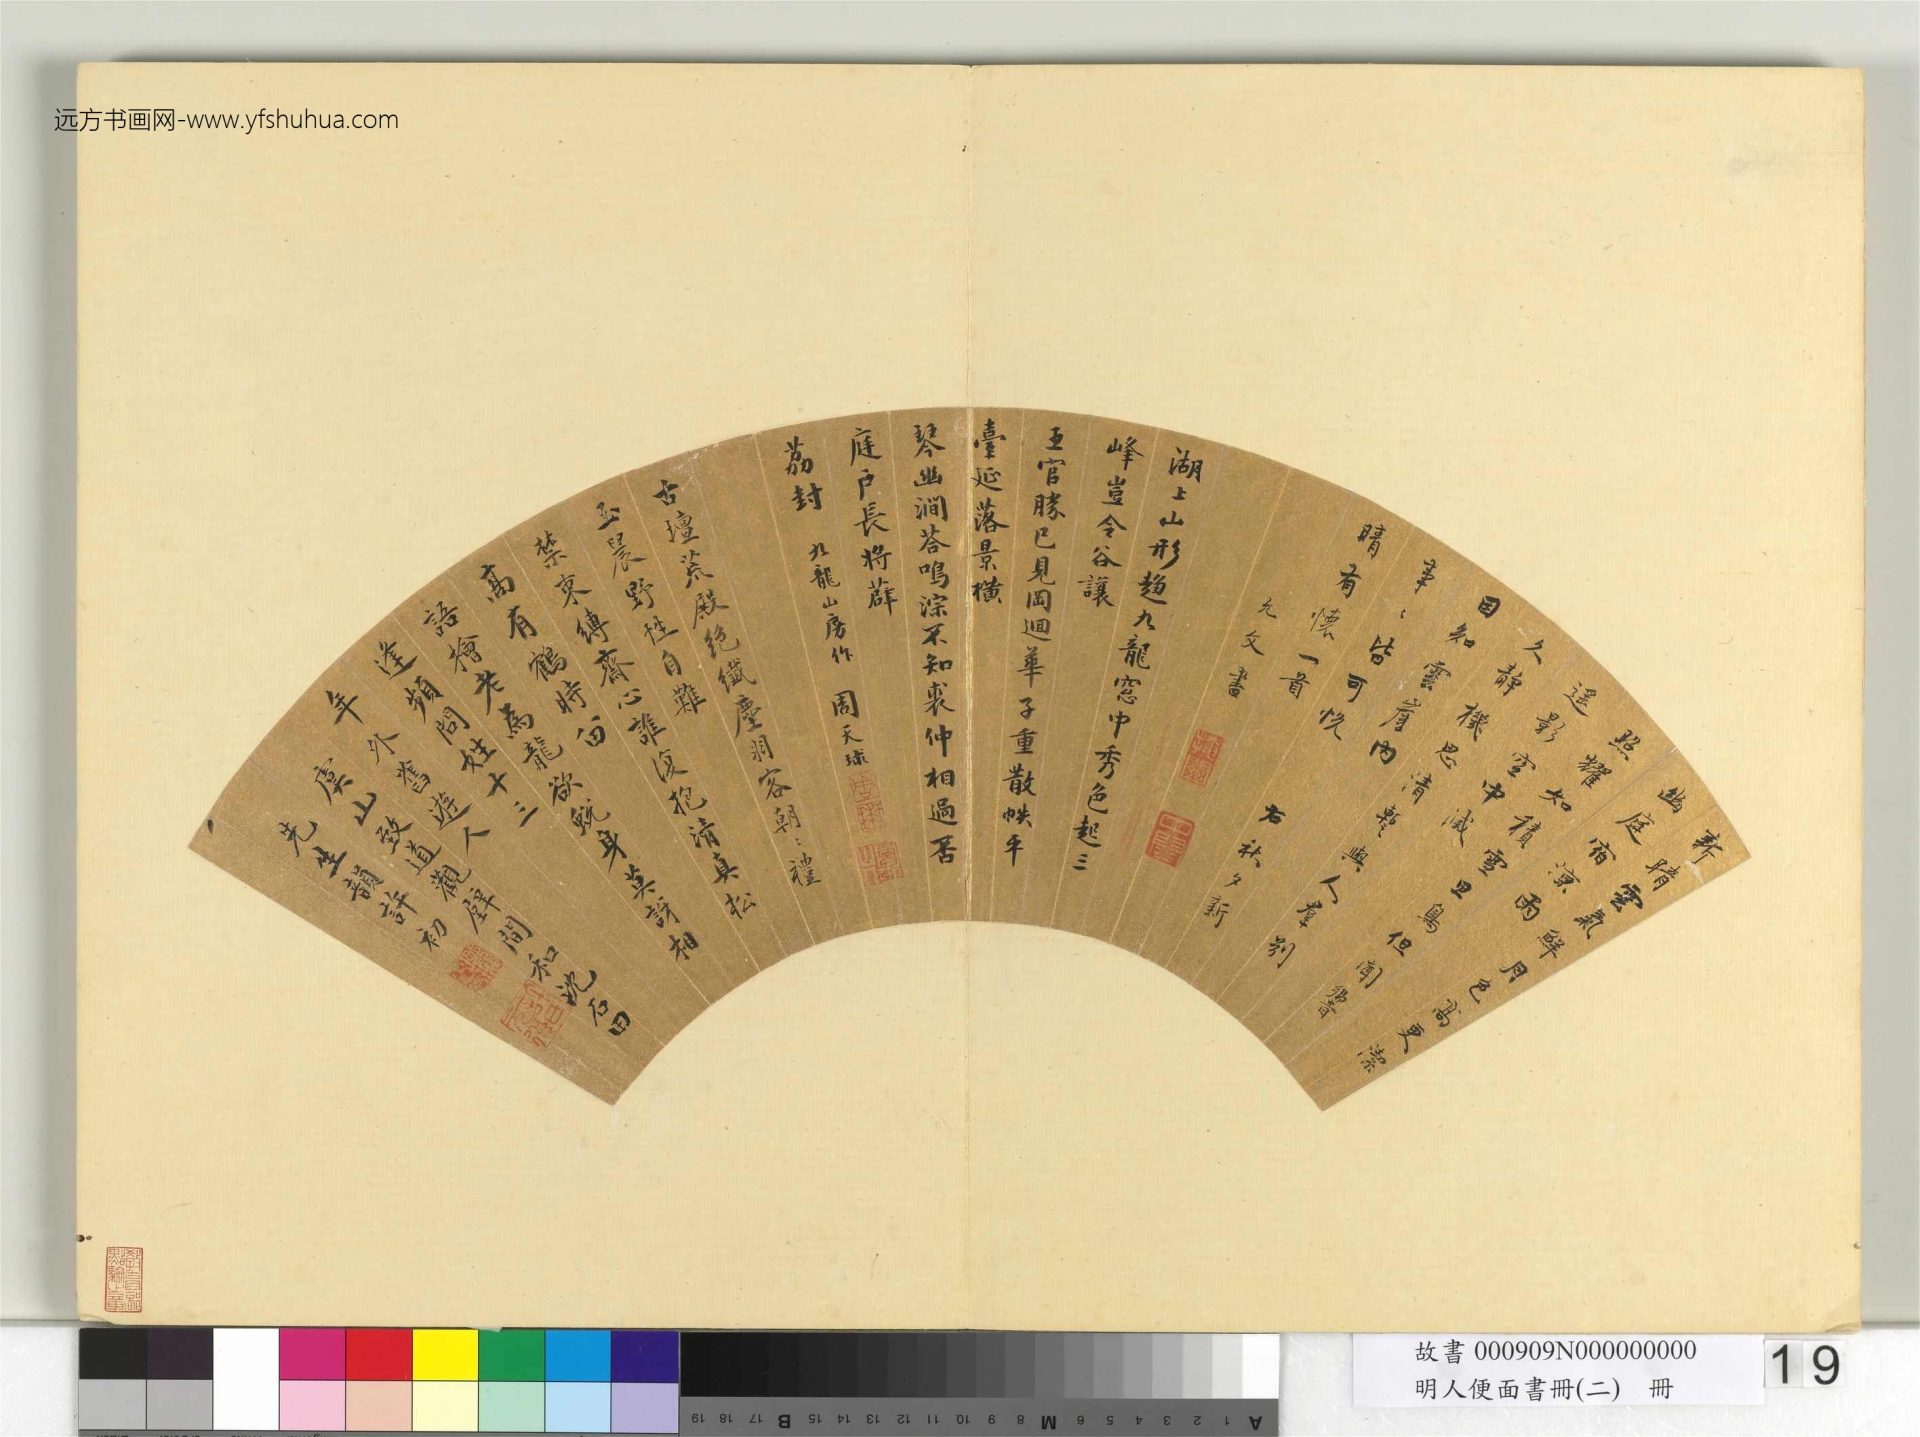 远方书画网-www.yfshuhua.com
新晴雲氣鮮月色寫更潔
幽庭宿涼雨
照耀空知積雪
遥影空中滅
久靜機思清暫與人羣別
目知雲崖內
事〻皆可悅
晴有懷一首
右秋夕新
允文書
湖上山形趨九龍窓中秀色起三
峰豈令谷讓
王官勝已見岡迴華子重散帙平
臺延落景橫
琴幽澗荅鳴淙不知裘仲相過否
庭戶長將薜
荔封 九龍山房作 周天球
古壇荒殿絕纖塵羽客朝〻禮
玉晨野性自難
禁束縛齋心誰復抱清真松
高有鶴時留
語檜老為龍欲蛻身莫訝相
逢頻問姓十三
年外舊遊人
虞山致道觀壁間和沈石田
先生韻許初
故書 000909N000000000
明人便面書冊(二) 冊
19
A 1 2 3 4 5 6 M 8 9 10 11 12 13 14 15 B 17 18 19